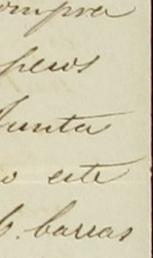 ompra
pesos
Junta
o este
b. barras